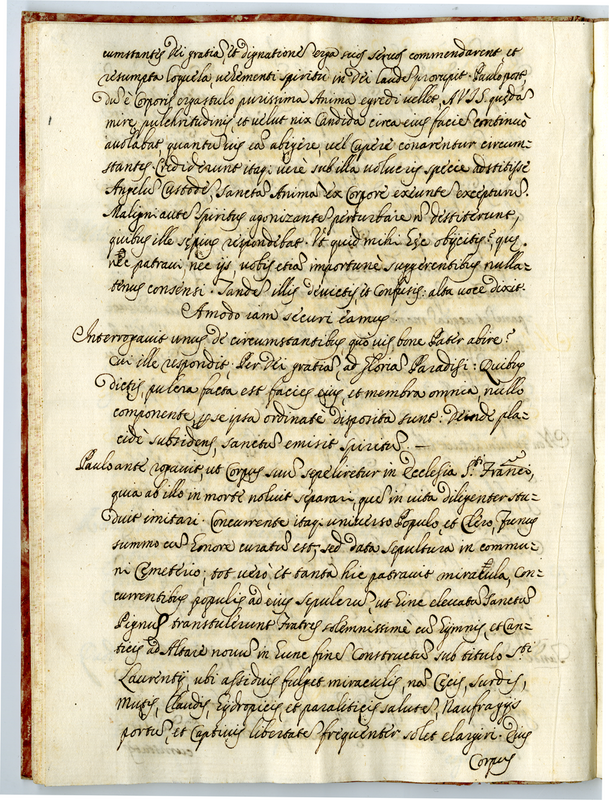 cumstantes Dei gratia, et dignatione erga suos servos commendarent et
resumpta loquela, vehementi spiritu in Dei laude prorupit. Paulo post
Dũ è Corporis ergastulo purissima Anima egredi vellet, AVIS quędã
mire pulchritudinis, et velut nix Candida circa eius facie continuò
avolabat quantũvis eã abigere, vel Capere conarentur circum=
stantes. Crediderunt itaq; verè sub illa volucris specie adstitisse
Angelũ Custodẽ, Sanctã Animã ex Corpore exeuntẽ excepturũ.
Maligni autẽ Spiritus agonizantẽ perturbare nõ destiterunt,
quibus ille sępius respondebat. Ut quid mihi hęc obijcitis? quę
nec patravi, nec ijs, vobis etiã importunè suggerentibus nulla=
tenus consensi. Tandẽ illis devictis et Confusis: alta voce dixit.
Amodo iam securi eamus.
Interrogavit unus de circumstantibus quo vis bone Pater abire?
Cui ille respondit. Per Dei gratiã, ad gloriã Paradisi. Quibus
dictis, pulcra facta est facies eius, et membra omnia, nullo
componente, p se ipsa ordinatè disposita sunt. Deinde pla=
cidè subsidens, sanctũ emisit spiritũ. —
Paulo ante rogavit, ut Corpus suũ sepeliretur in Ecclesia Sti. Franci,
quia ab illo in morte noluit separari, quẽ in vita diligenter stu=
duit imitari. Concurrente itaq; universo Populo, et Clero, funus
summo cũ honore curatũ est, sed data sepultura in commu=
ni Cemeterio; tot verò et tanta hic patravit miracula, Con=
currentibus populis ad eius sepulcrũ, ut hinc elevatũ Sanctũ
Pignus transtulerunt fratres solemnissimè cũ hymnis, et Can=
ticis ad Altare novũ in hunc finẽ Constructũ sub titulo Sti.
Laurentij, ubi assiduis fulget miraculis, nã Cęcis, surdis,
Mutis, Claudis, hydropicis, et paraliticis salutẽ, Naufragijs
portũ, et Captivis libertatẽ frequenter solet elargiri. Eius
Corpus